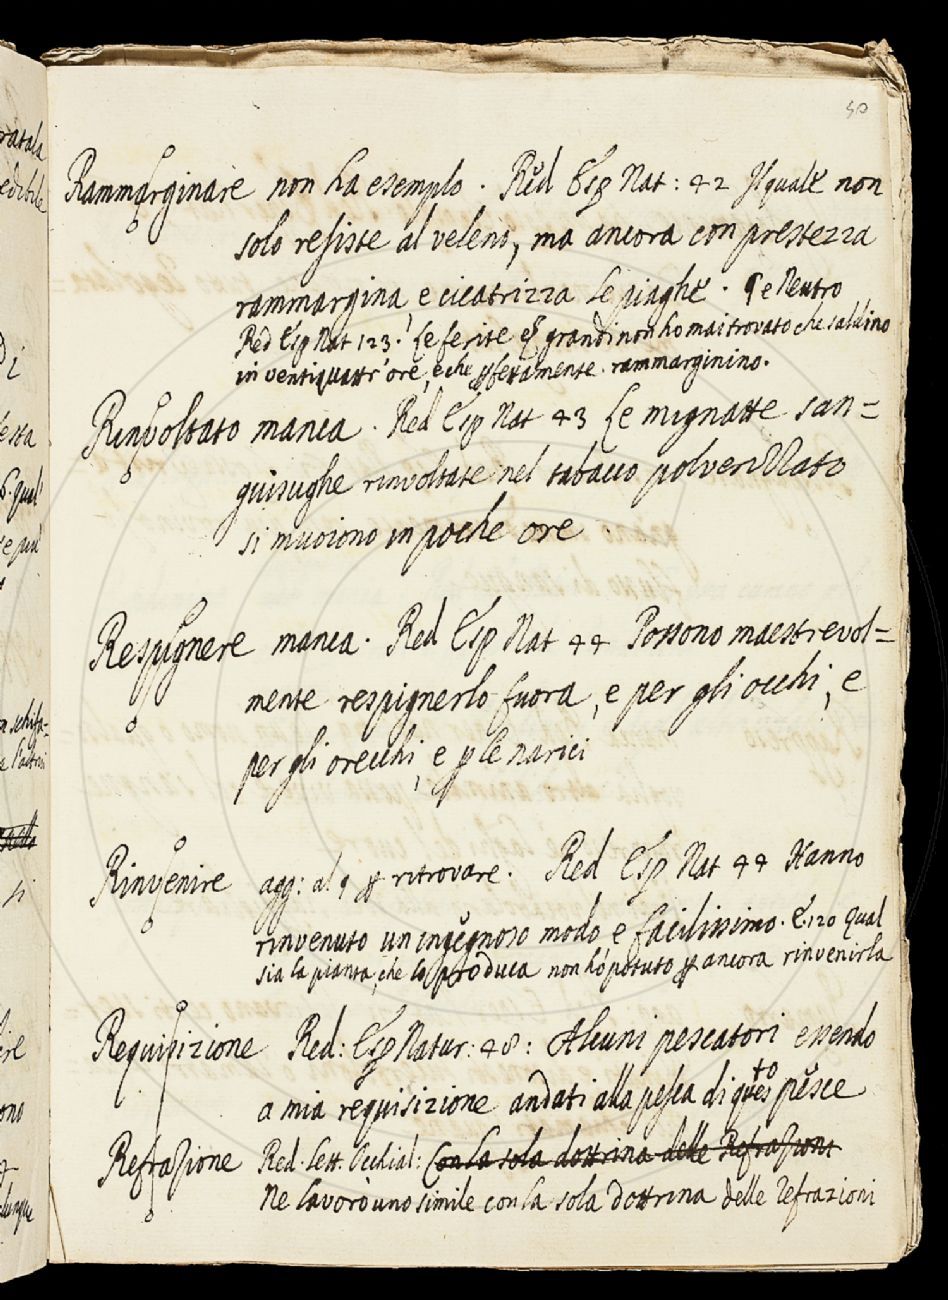 50
Rammarginare non ha esempio. Red Esp Nat: 42 Il quale non
solo resiste al veleno, ma ancora con prestezza
rammargina, e cicatrizza le piaghe. ¶ e Neutro
Red Esp Nat 123. Le ferite grandi non ho mai trovato che saldino
in ventiquattr'ore, e che rammarginino.
Rinvoltato manca. Red Esp Nat 43 Le mignatte san=
guisughe rinvoltate nel tabacco polverizzato
si muoiono in poche ore
Respignere manca. Red Esp Nat 44 Possono maestrevol=
mente respignerlo fuora, e per gli occhi, e
per gli orecchi, e p le narici
Rinvenire agg: al ¶ p ritrovare. Red Esp Nat 44 Hanno
rinvenuto un ingegnoso modo e facilissimo. E. 120 qual
sia la pianta, che lo produca non hò potuto p ancora rinvenirla
Requisizione Red: Esp Natur: 48: Alcuni pescatori essendo
a mia requisizione andati alla pesca di questo pesce
Refrazione Red. Lett. Occhial: Con la sola dottrina delle Refrazioni
Ne lavorò uno simile con la sola dottrina delle refrazioni
ratala
edibile
esta
qual
e più
si
ono